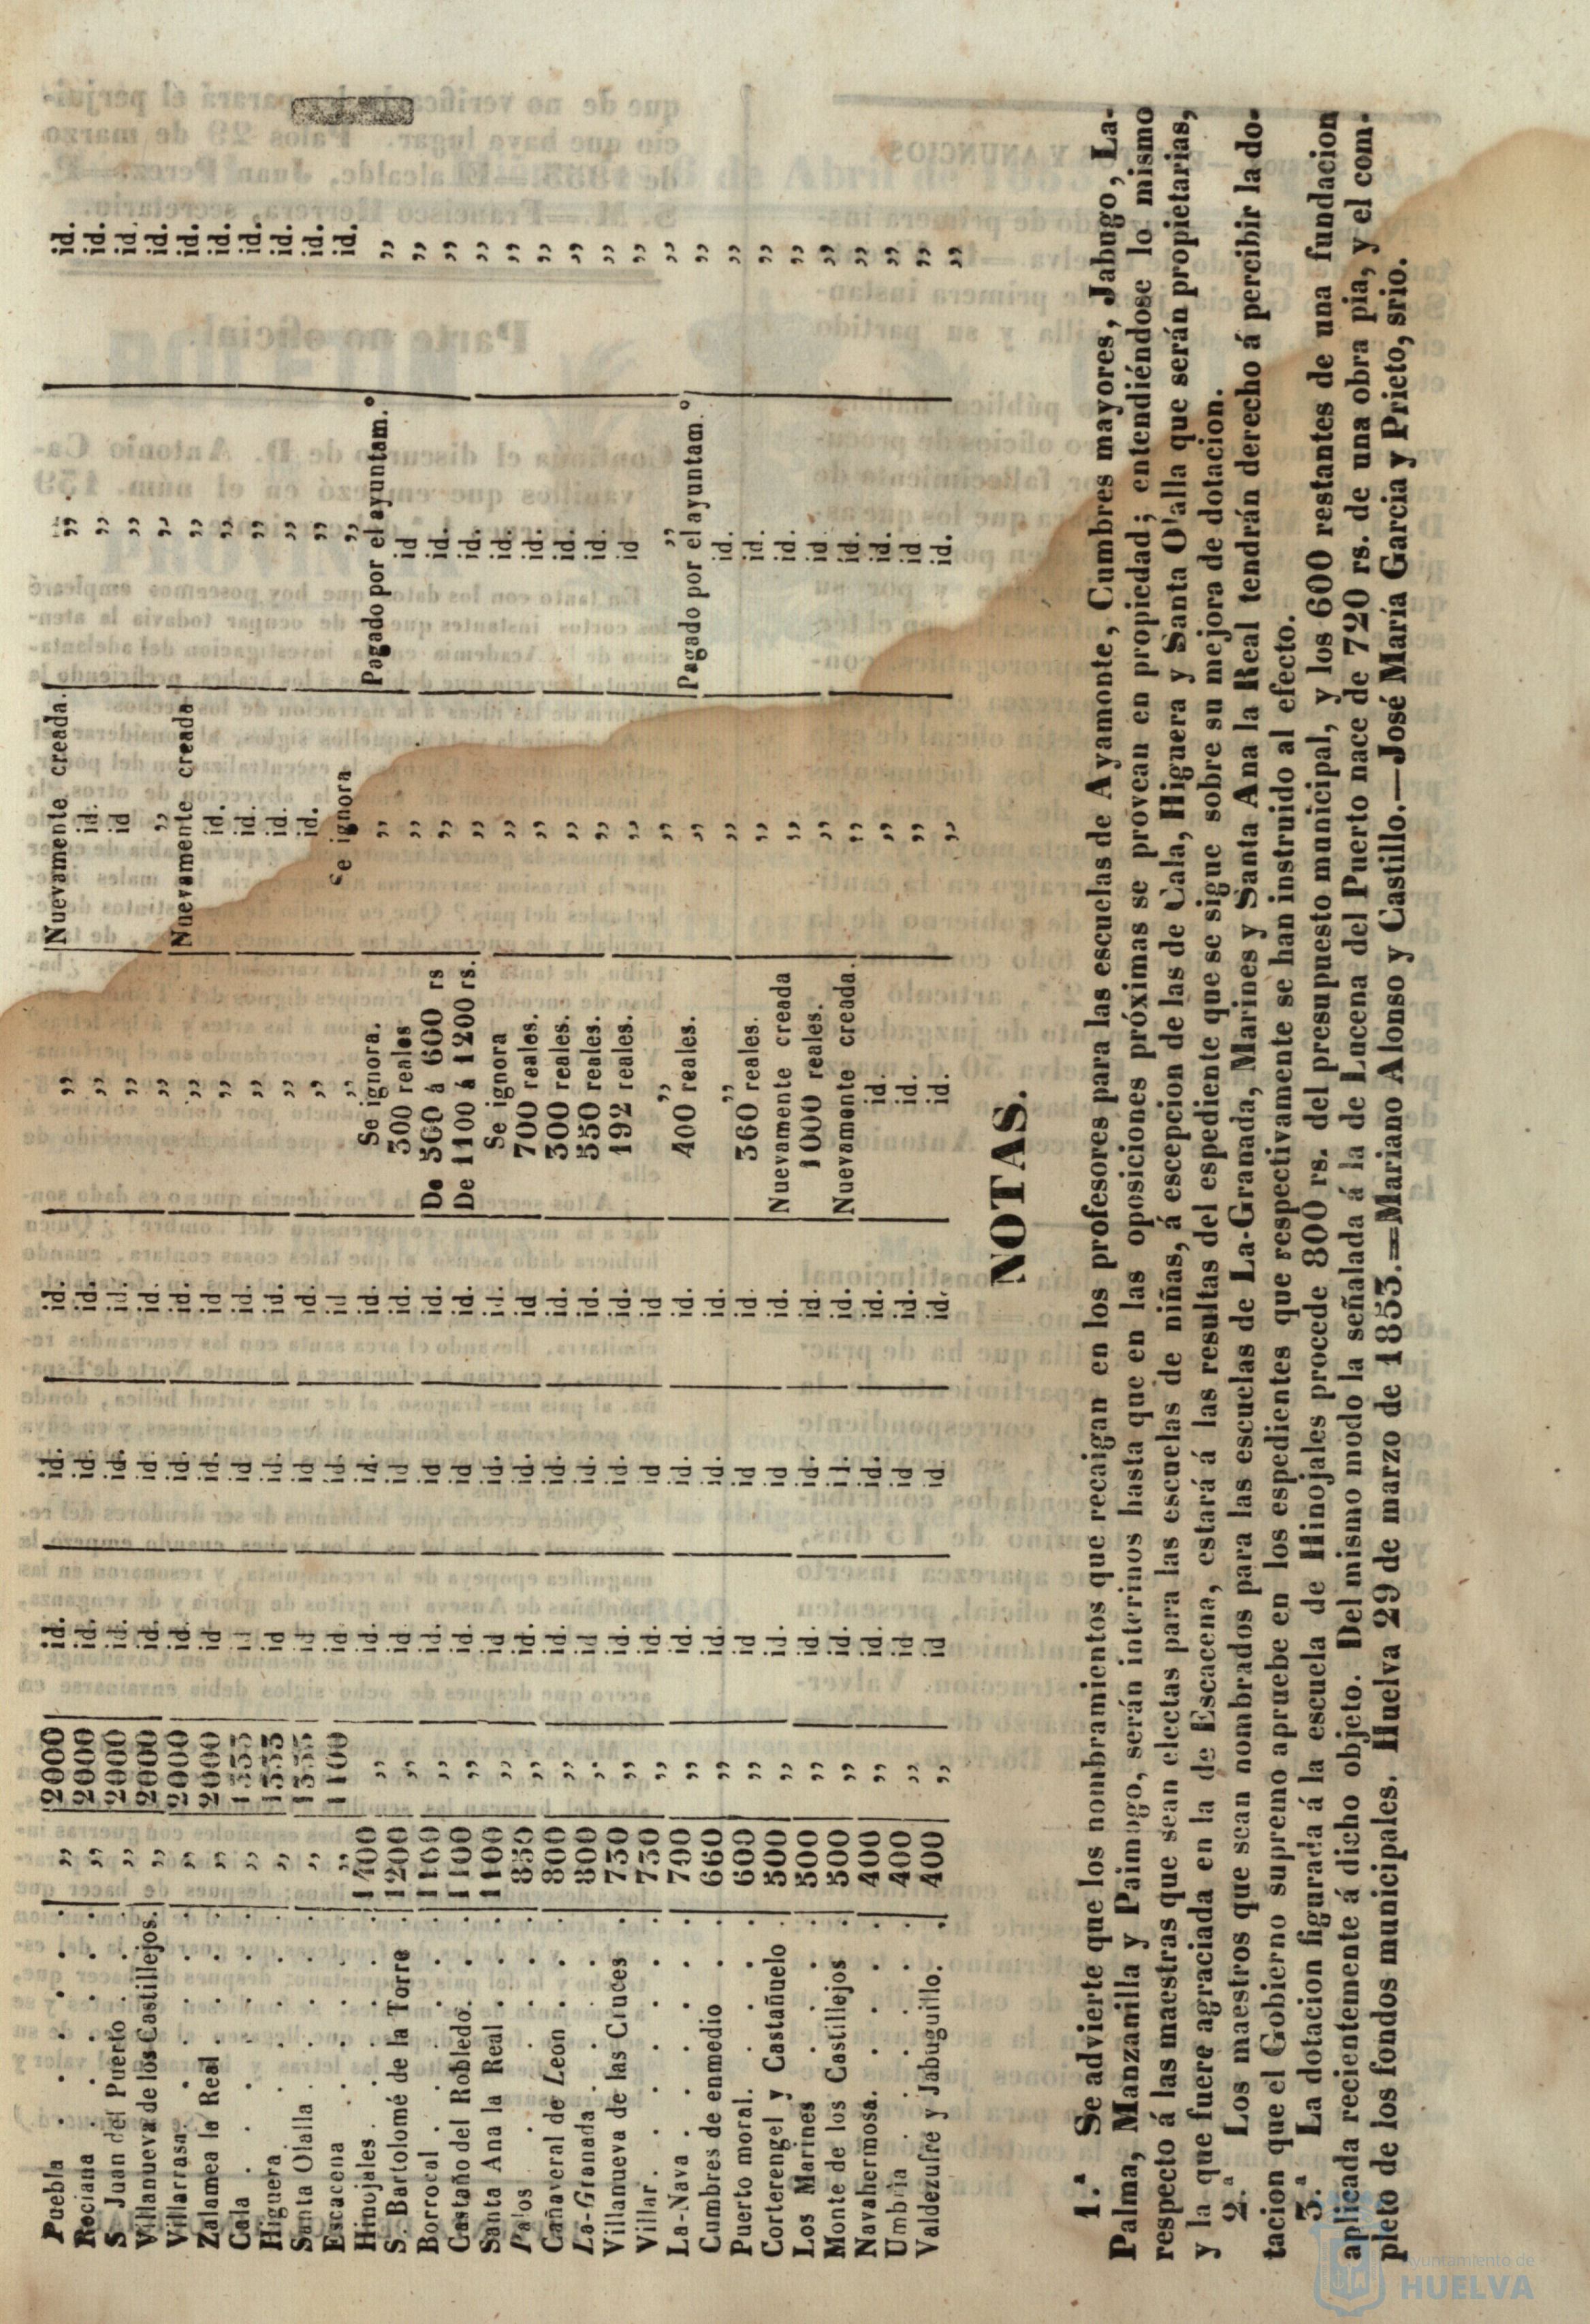 Puebla . . . . . ,, 2000 id. id. id. ,, Nuevamente creada. ,, id.
Rociana . . . . . ,, 2000 id. id. id. ,, id. ,, id.
S. Juan del Puerto . . . ,, 2000 id. id. id. ,, id ,, id.
Villanueva de los Castillejos. ,, 2000 id. id. id. ,, ,, ,, id.
Villarrasa. . . . . ,, 2000 id. id. id. ,, Nuevamente creada ,, id.
Zalamea la Real . . . ,, 2000 id id. id. ,, id. ,, id.
Cala . . . . . ,, 1333 id id id. ,, id. ,, id.
Higuera . . . . . ,, 1333 id id id. ,, id. ,, id.
Santa Olalla . . . . ,, 1333 id id id. ,, id. ,, id.
Escacena . . . . . ,, 1100 id id. id ,, Se ignora ,, id.
Hinojales . . . . . 1400 ,, id. id. id. Se ignora. ,, Pagado por el ayuntam.º ,,
S. Bartolomé de la Torre . 1200 ,, id id id. 300 reales ,, id ,,
Borrocal . . . . . 1100 ,, id. id id. De 360 á 600 rs ,, id. ,,
Castaño del Robledo. . . 1100 ,, id. id id. De 1100 á 1200 rs. ,, id. ,,
Santa Ana la Real . . . 1100 ,, id id. id. Se ignora ,, id. ,,
Palos . . . . . 850 ,, id. id. id 700 reales. ,, id. ,,
Cañaveral de Leon . . . 800 ,, id. id. id. 300 reales. ,, id. ,,
La-Granada . . . . 800 ,, id id. id. 550 reales. ,, id. ,,
Villanueva de las Cruces . 730 ,, id. id. id. 192 reales. ,, id ,,
Villar . . . . . 730 ,, id. id id ,, ,, ,, ,,
La-Nava . . . . . 700 ,, id. id. id. 400 reales. ,, Pagado por el ayuntam.º ,,
Cumbres de enmedio . . 660 ,, id. id. id. ,, ,, id. ,,
Puerto moral. . . . . 600 ,, id id id 360 reales. ,, id. ,,
Corterengel y Castañuelo . 500 ,, id. id id. Nuevamente creada ,, id. ,,
Los Marines . . . . 500 ,, id. id. id. 1000 reales. ,, id ,,
Monte de los Castillejos . 500 ,, id. id. id. Nuevamente creada. ,, id. ,,
Navahermosa. . . . . 400 ,, id. id. id. id. ,, id. ,,
Umbria . . . . . 400 ,, id id id. id. ,, id ,,
Valdezufre y Jabuguillo. . 400 ,, id id id. id. ,, id. ,,
NOTAS.
1.ª Se advierte que los nombramientos que recaigan en los profesores para las escuelas de Ayamonte, Cumbres mayores, Jabugo, La-
Palma, Manzanilla y Paimogo, serán interinos hasta que en las oposiciones próximas se provean en propiedad; entendiéndose lo mismo
respecto á las maestras que sean electas para las escuelas de niñas, á escepcion de las de Cala, Higuera y Santa O'alla que serán propietarias,
y la que fuere agraciada en la de Escacena, estará á las resultas del espediente que se sigue sobre su mejora de dotacion.
2.ª Los maestros que sean nombrados para las escuelas de La-Granada, Marines y Santa Ana la Real tendrán derecho á percibir la do-
tacion que el Gobierno supremo apruebe en los espedientes que respectivamente se han instruido al efecto.
3.ª La dotacion figurada á la escuela de Hinojales procede 800 rs. del presupuesto municipal, y los 600 restantes de una fundacion
aplicada recientemente á dicho objeto. Del mismo modo la señalada á la de Lucena del Puerto nace de 720 rs. de una obra pia, y el com-
pleto de los fondos municipales. Huelva 29 de marzo de 1853.=Mariano Alonso y Castillo.—José María Garcia y Prieto, srio.
Ayuntamiento de
HUELVA